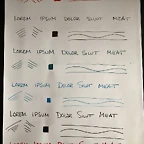 LOREM IPSUM DOLOR SHUT MEAT
LOREM IPSUM DOLOR SHUT MEAT
LOREM IPSUM DOLOR SHUT MEAT
LOREM IPSUM DOLOR SHUT MEAT
LOREM IPSUM DOLOR